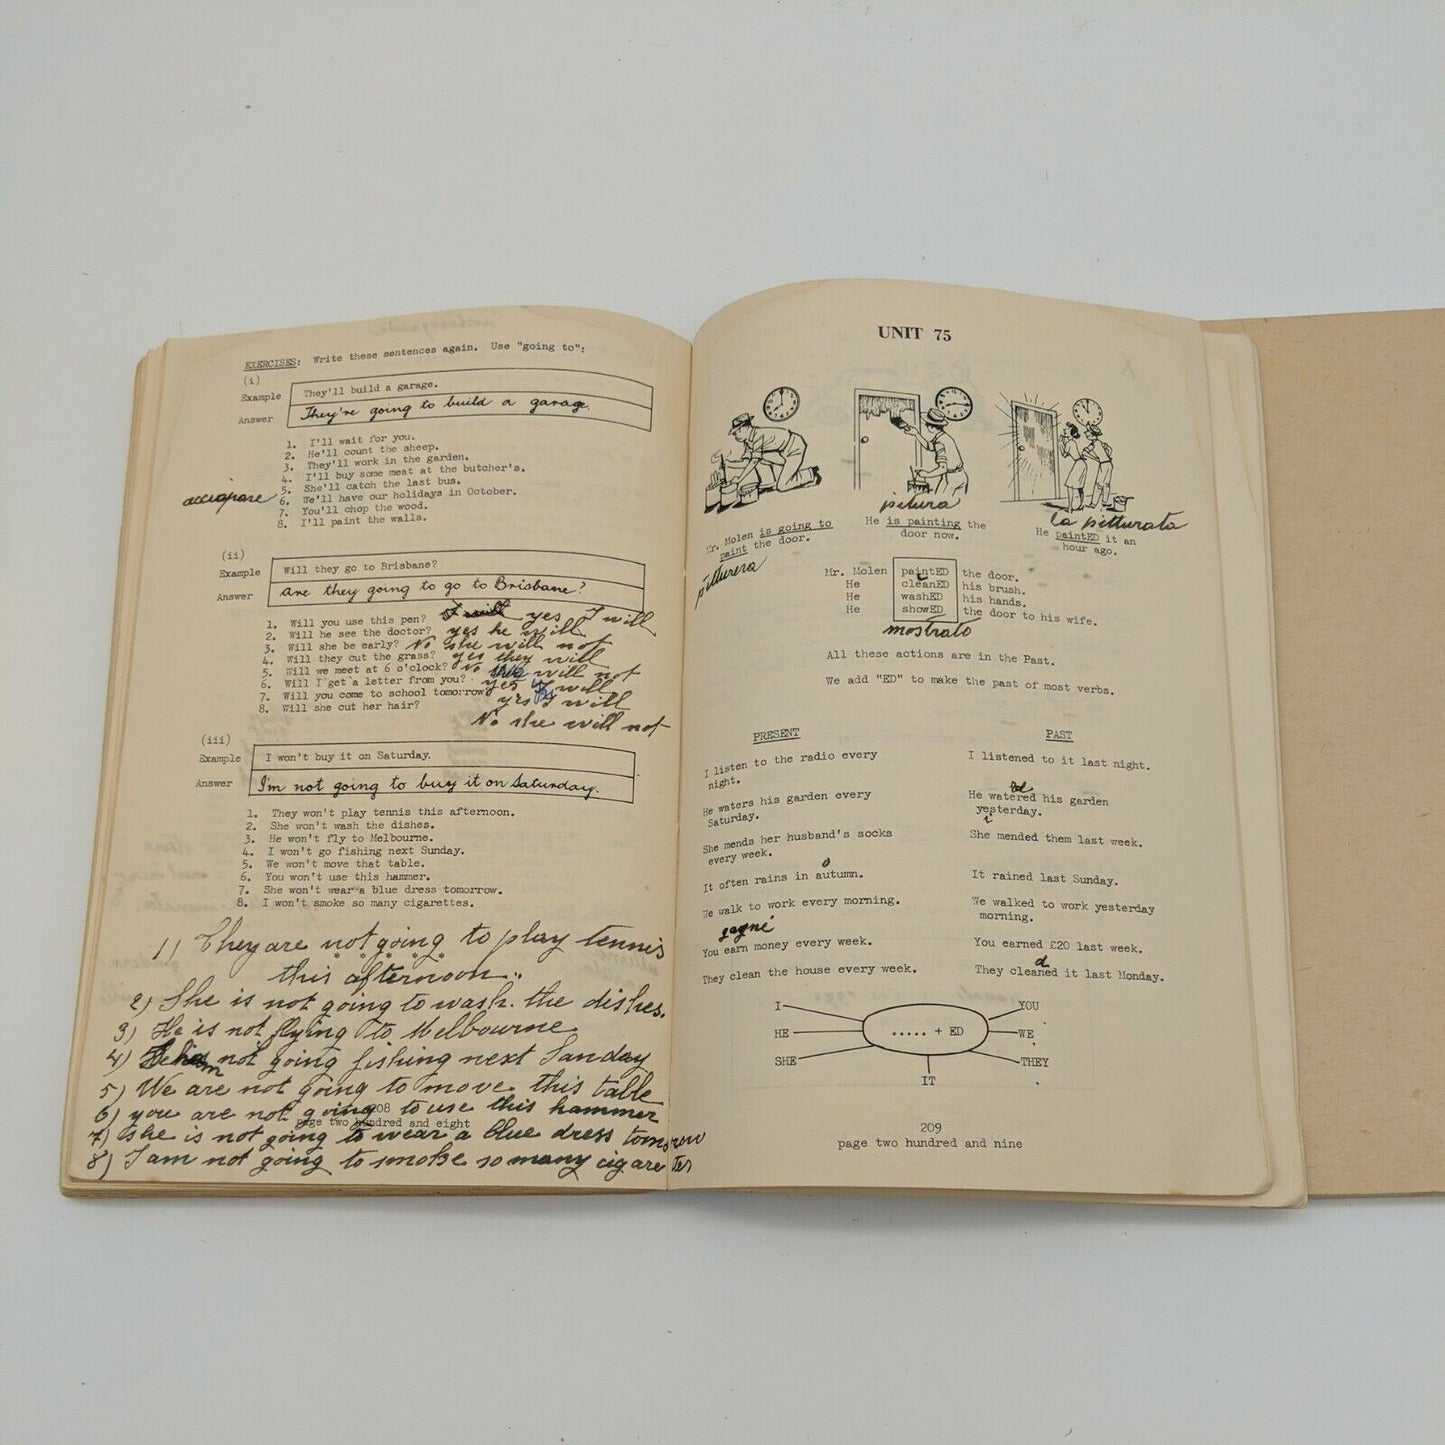 EXERCISES: Write these sentences again. Use "going to":
(i)
Example They'll build a garage.
Answer They're going to build a garage.
1. I'll wait for you.
2. He'll count the sheep.
3. They'll work in the garden.
4. I'll buy some meat at the butcher's.
5. She'll catch the last bus.
acciapare
6. We'll have our holidays in October.
7. You'll chop the wood.
8. I'll paint the walls.
(ii)
Example Will they go to Brisbane?
Answer Are they going to go to Brisbane?
1. Will you use this pen? yes I will
2. Will he see the doctor? yes he will
3. Will she be early? No she will not
4. Will they cut the grass? yes they will
5. Will we meet at 6 o'clock? No will not
6. Will I get a letter from you? yes will
7. Will you come to school tomorrow? yes I will
8. Will she cut her hair? No she will not
(iii)
Example I won't buy it on Saturday.
Answer I'm not going to buy it on Saturday.
1. They won't play tennis this afternoon.
2. She won't wash the dishes.
3. He won't fly to Melbourne.
4. I won't go fishing next Sunday.
5. We won't move that table.
6. You won't use this hammer.
7. She won't wear a blue dress tomorrow.
8. I won't smoke so many cigarettes.
* * * * *
1) They are not going to play tennis
this afternoon.
2) She is not going to wash. the dishes.
3) He is not flying to Melbourne
4) not going fishing next Sanday
5) We are not going to move this table
6) you are not going to use this hammer
7) she is not going to wear a blue dress tomorrow
8) I am not going to smoke so many cigarettes
208
page two hundred and eight
UNIT 75
Mr. Molen is going to
paint the door.
pitturera
pitura
He is painting the
door now.
la pitturata
He paintED it an
hour ago.
Mr. Molen paintED the door.
He cleanED his brush.
He washED his hands.
He showED the door to his wife.
mostrato
All these actions are in the Past.
We add "ED" to make the past of most verbs.
PRESENT PAST
I listen to the radio every
night.
I listened to it last night.
He waters his garden every
Saturday.
He watered his garden
yesterday.
i
She mends her husband's socks
every week.
She mended them last week.
o
It often rains in autumn.
It rained last Sunday.
We walk to work every morning.
We walked to work yesterday
morning.
gagné
You earn money every week.
You earned £20 last week.
d
They clean the house every week.
They cleaned it last Monday.
I YOU
HE ..... + ED WE
SHE THEY
IT
209
page two hundred and nine